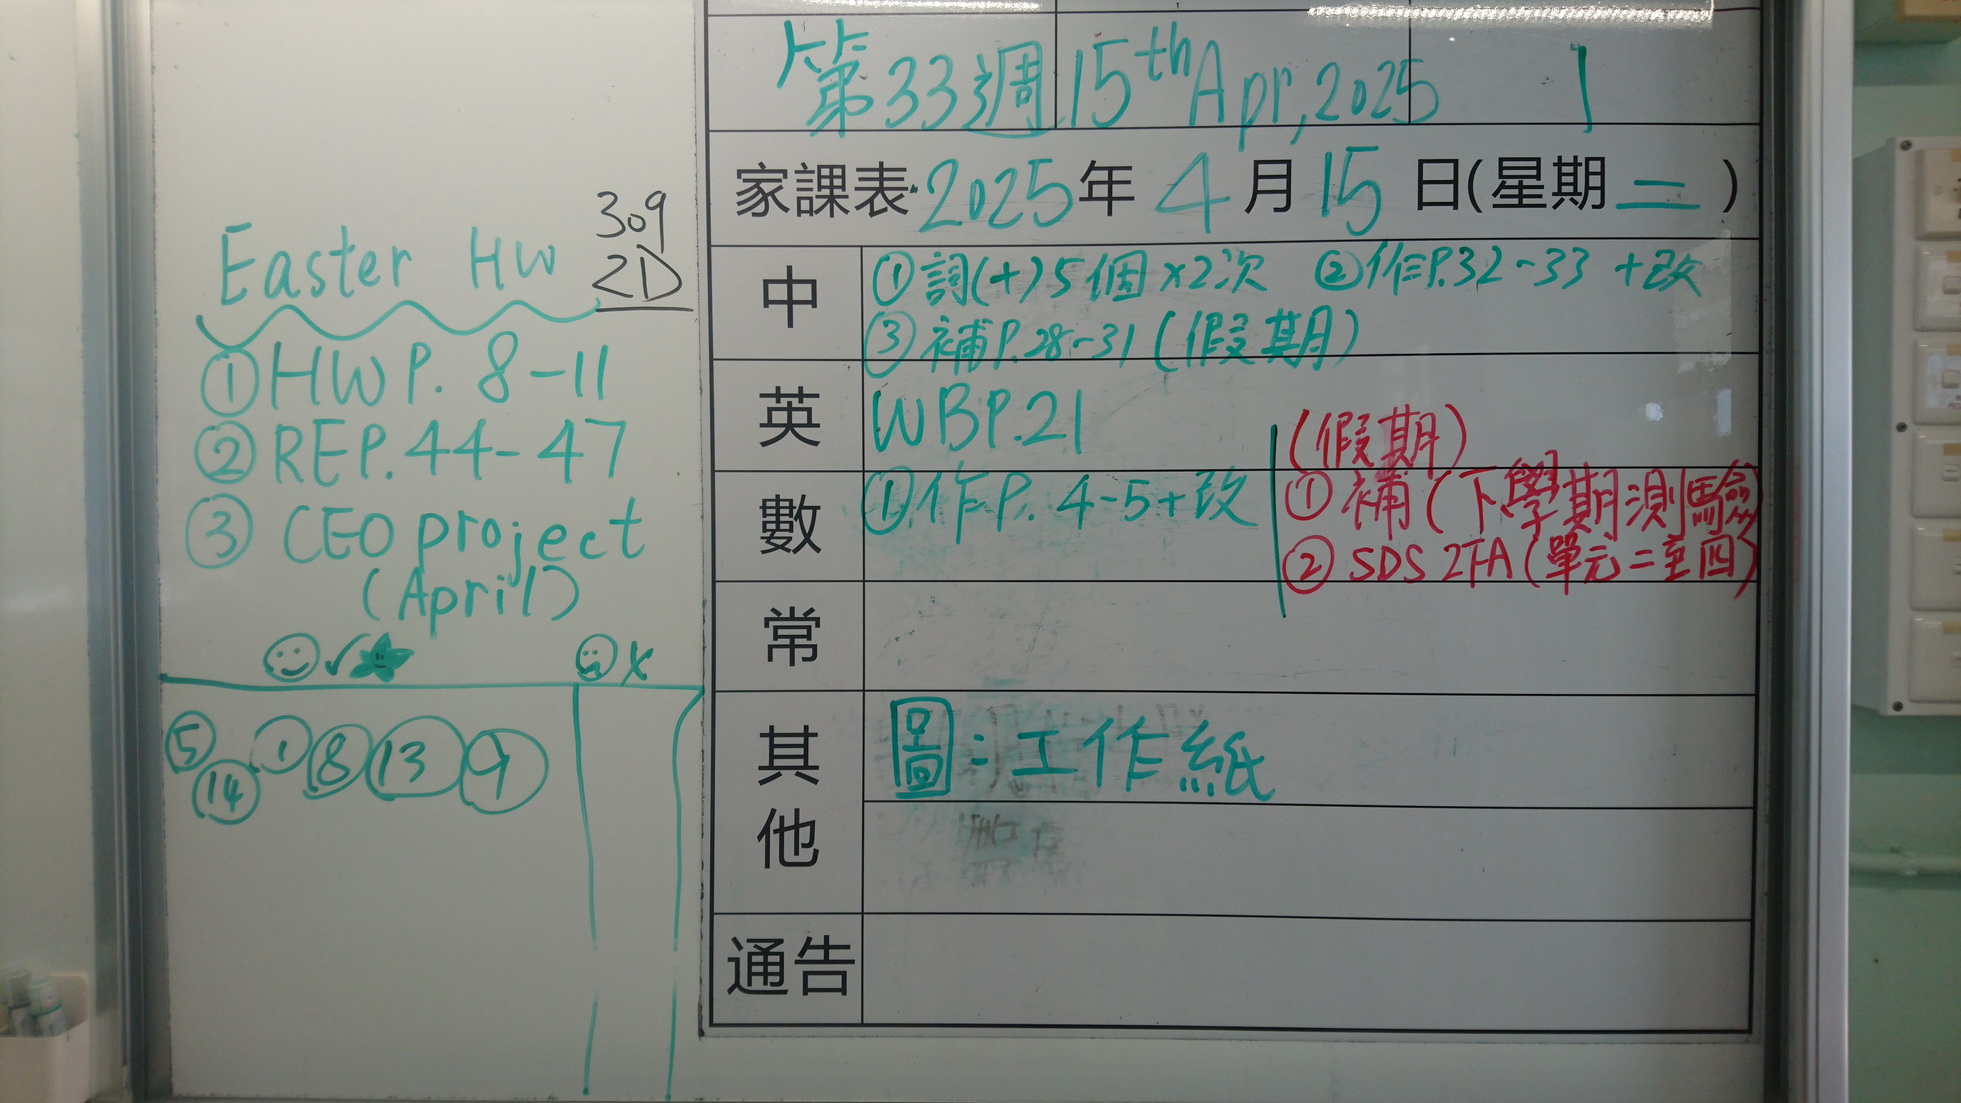 第33週 15th Apr, 2025
家課表 2025年 4月 15日(星期二)
309
2D
Easter HW
① HW P. 8-11
② RE P. 44-47
③ CEO project
(April)
✓ ✗
⑤ ① ⑧ ⑬ ⑨
⑭
中
① 詞(+)5個×2次 ② 作P.32-33 +改
③ 補P.28-31 (假期)
英
WB P.21
(假期)
數
① 作P. 4-5+改
① 補(下學期測驗)
② SDS 2TA (單元二至四)
常
其他
圖：工作紙
通告